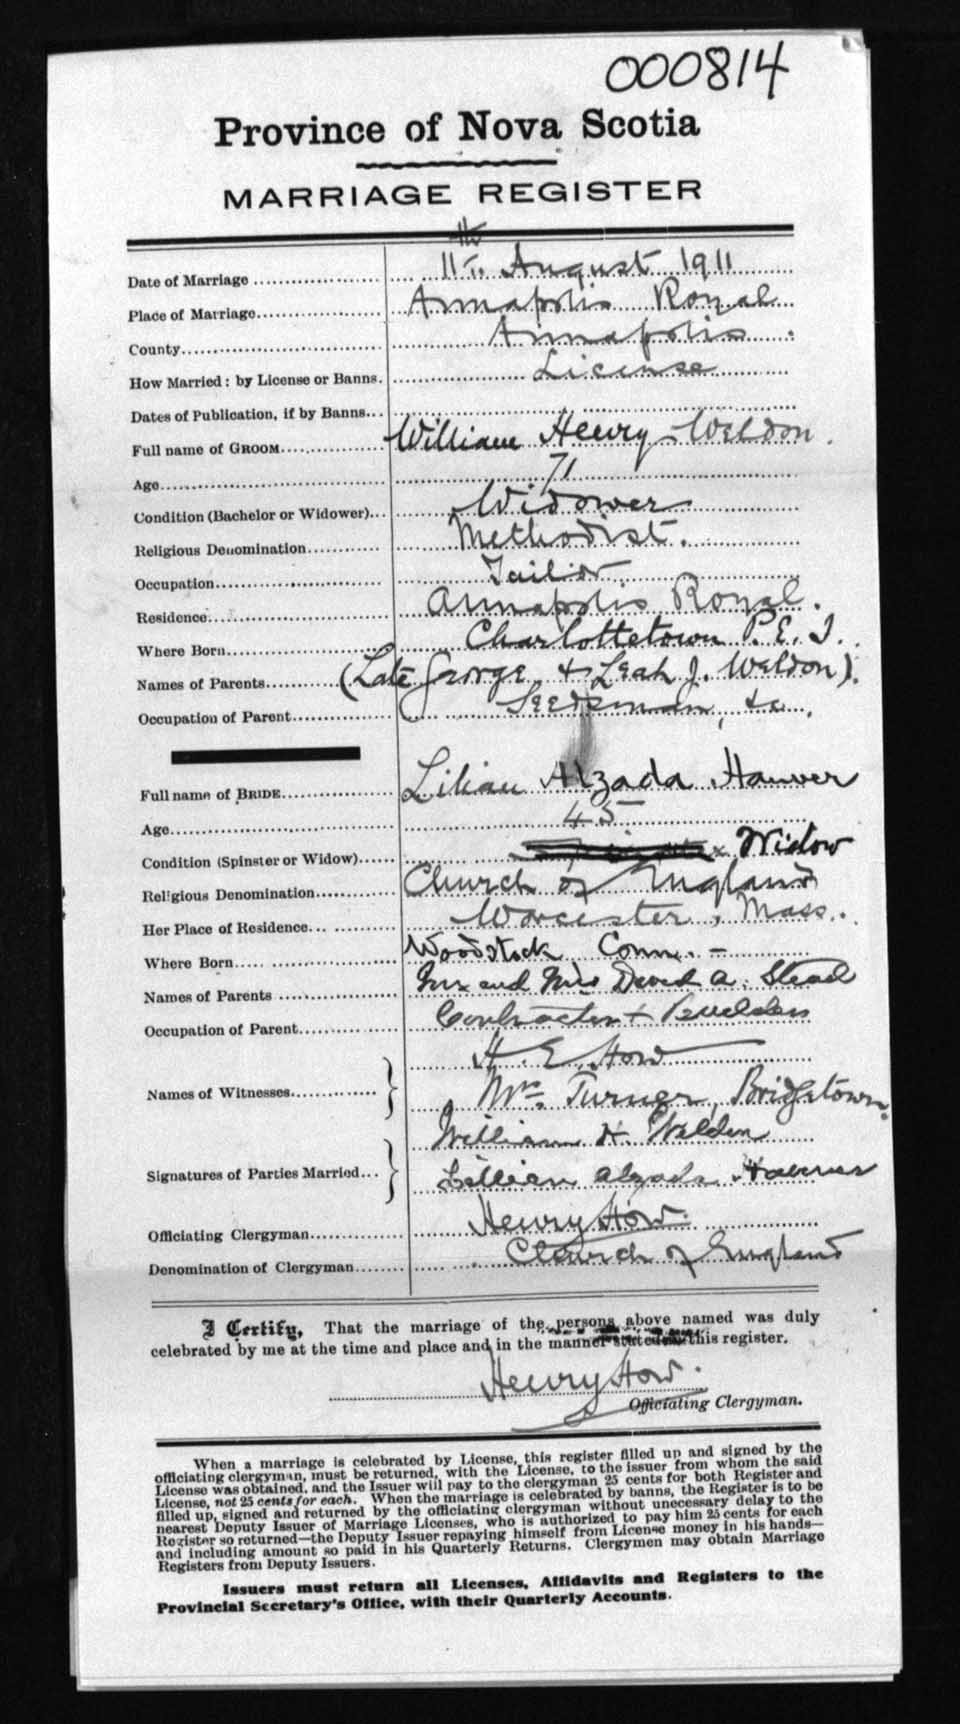 000814
Province of Nova Scotia
MARRIAGE REGISTER
Date of Marriage 11th August 1911
Place of Marriage Annapolis Royal
County Annapolis
How Married: by License or Banns. License
Dates of Publication, if by Banns
Full name of GROOM William Henry Weldon.
Age 71
Condition (Bachelor or Widower) Widower
Religious Denomination Methodist.
Occupation Tailor
Residence Annapolis Royal.
Where Born Charlottetown P. E. I.
Names of Parents (Late George & Leah J. Weldon).
Occupation of Parent Seedsman, &c.
Full name of BRIDE Lilian Alzada Hanver
Age 45
Condition (Spinster or Widow) Widow
Religious Denomination Church of England
Her Place of Residence Worcester, Mass.
Where Born Woodstock Conn. -
Names of Parents Mr and Mrs David A. Stead
Occupation of Parent Contractor + Builder
H. E. How
Names of Witnesses
Mrs. Turner, Bridgetown.
William H Weldon
Signatures of Parties Married
Lillian Alzada
Officiating Clergyman Henry How.
Denomination of Clergyman Church of England
I Certify, That the marriage of the persons above named was duly
celebrated by me at the time and place and in the manner stated in this register.
Henry How.
Officiating Clergyman.
When a marriage is celebrated by License, this register filled up and signed by the
officiating clergyman, must be returned, with the License, to the issuer from whom the said
License was obtained, and the Issuer will pay to the clergyman 25 cents for both Register and
License, not 25 cents for each. When the marriage is celebrated by banns, the Register is to be
filled up, signed and returned by the officiating clergyman without unnecessary delay to the
nearest Deputy Issuer of Marriage Licenses, who is authorized to pay him 25 cents for each
Register so returned—the Deputy Issuer repaying himself from License money in his hands—
and including amount so paid in his Quarterly Returns. Clergymen may obtain Marriage
Registers from Deputy Issuers.
Issuers must return all Licenses, Affidavits and Registers to the
Provincial Secretary's Office, with their Quarterly Accounts.